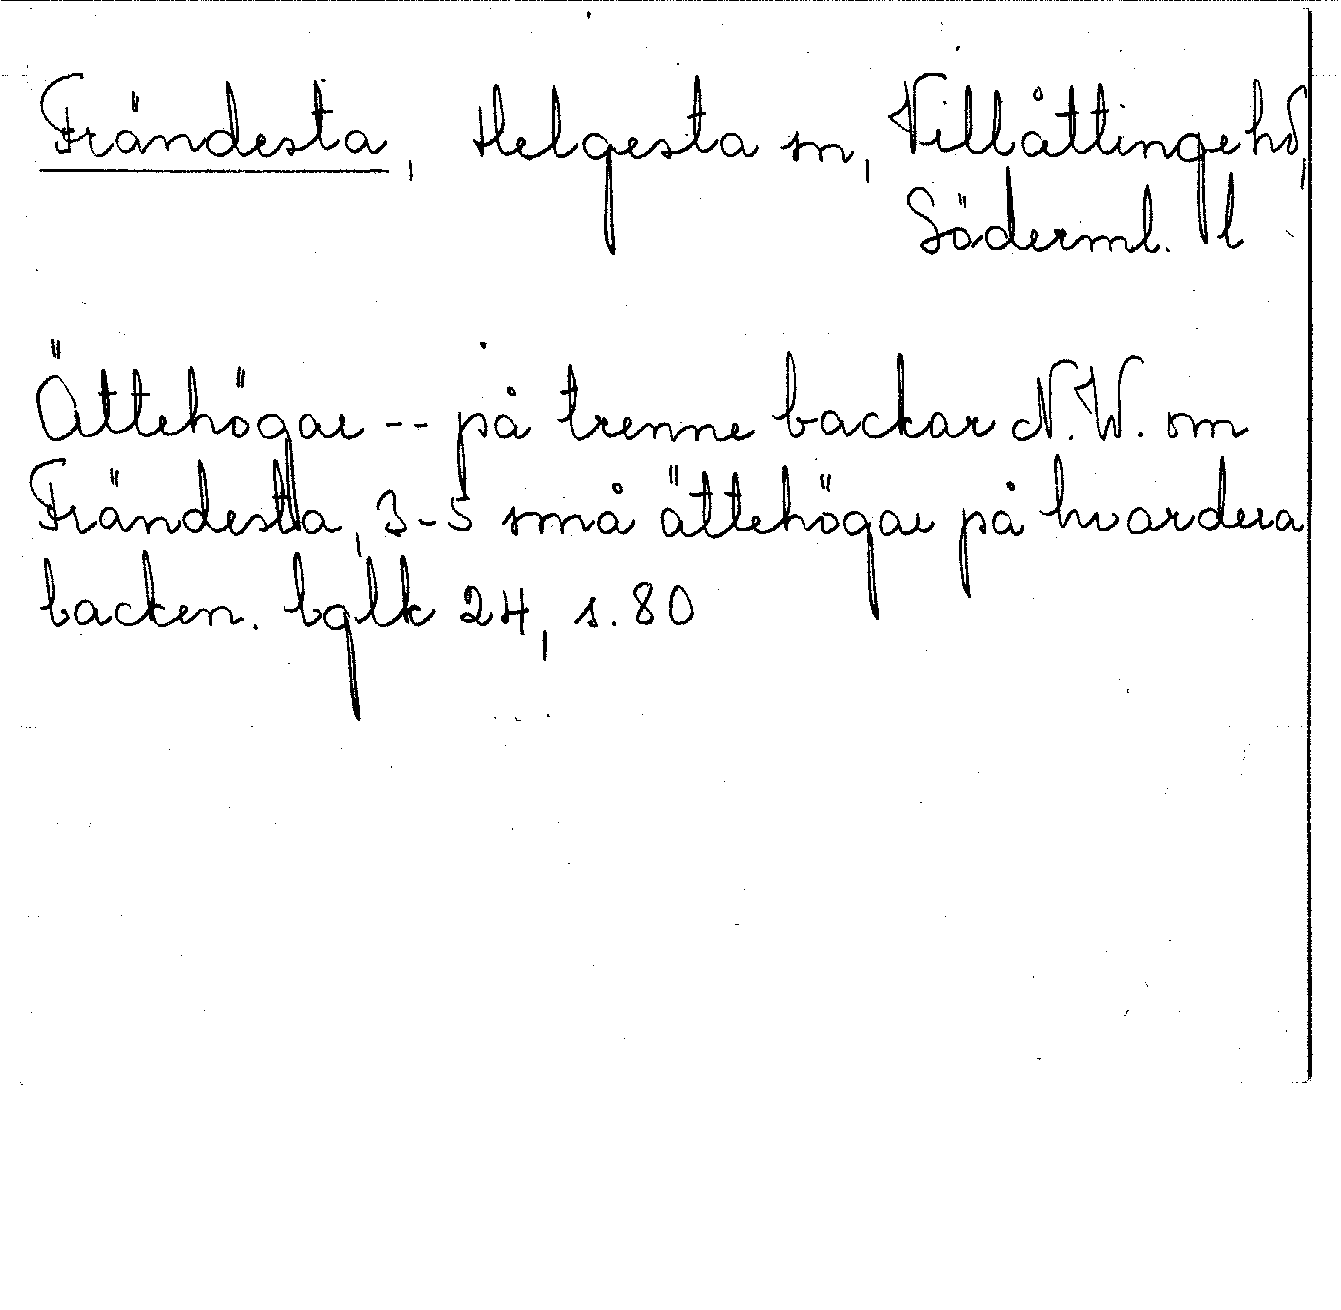 Frändesta, Helgesta sn, Villåttinge hd,
Söderml. l
Ättehögar -- på trenne backar N.W. om
Frändesta, 3-5 små ättehögar på hvardera
backen. bglk 24, s. 80